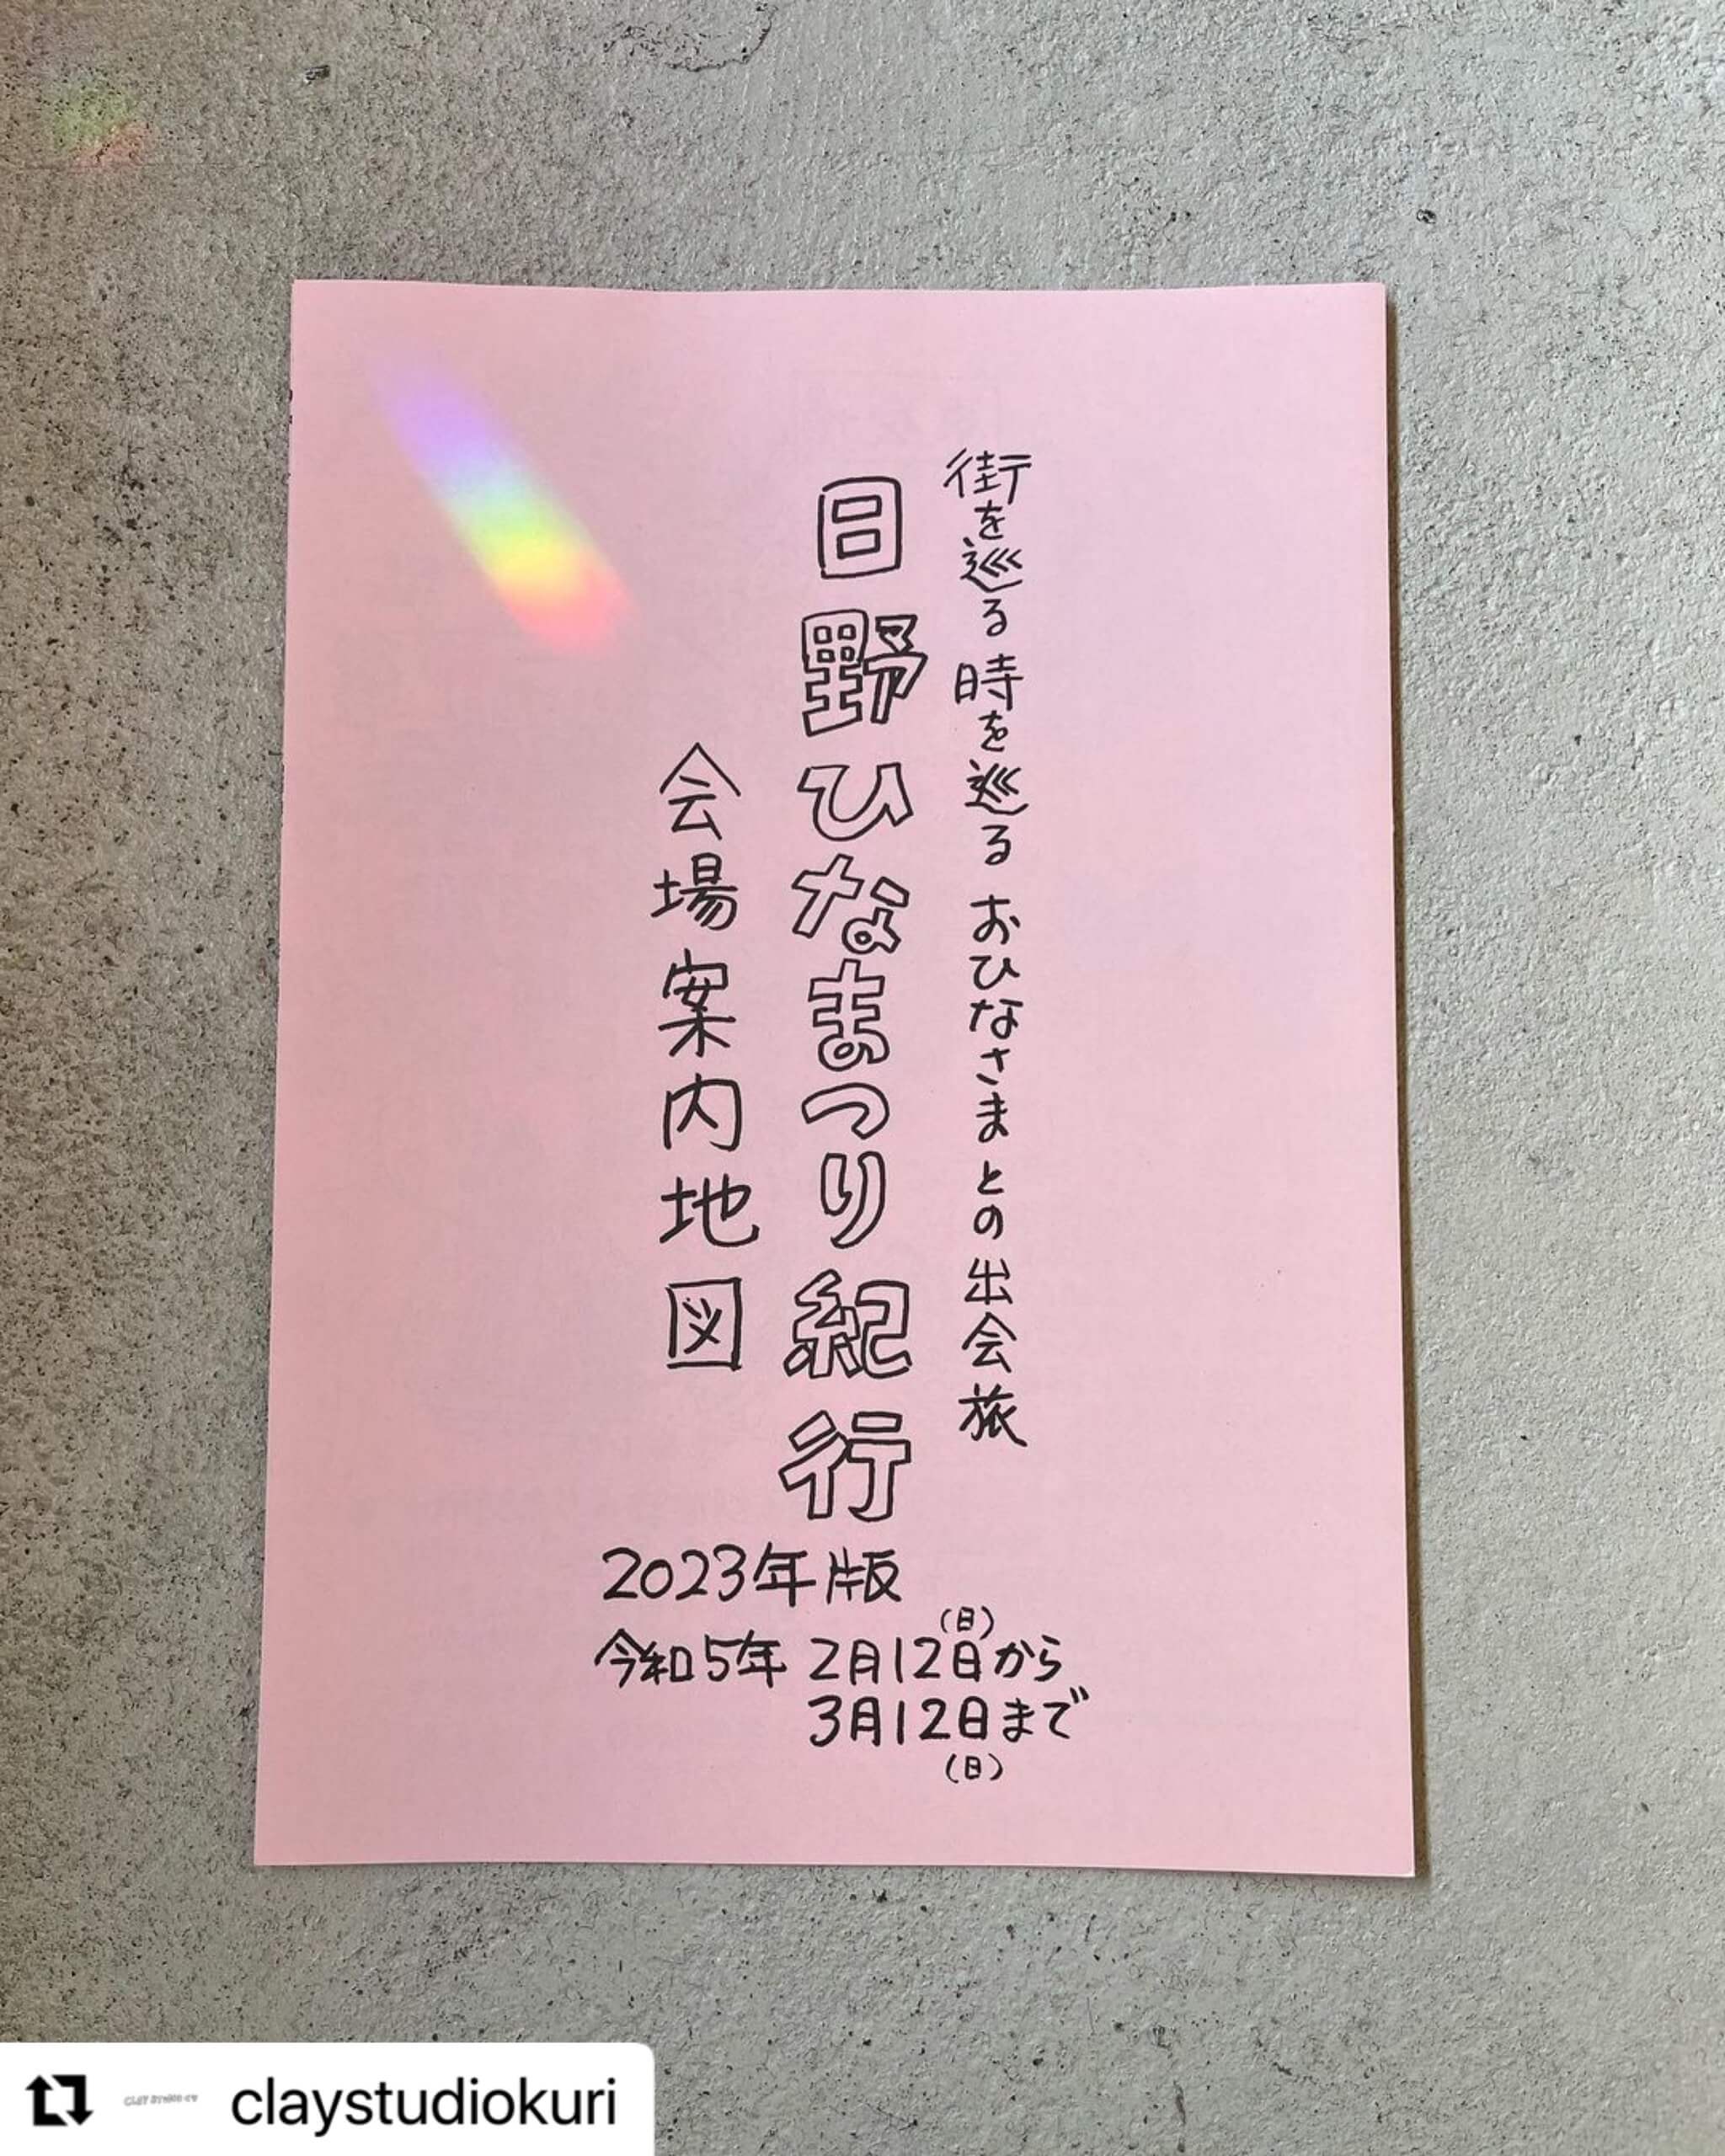 街を巡る 時を巡る おひなさまとの出会旅
日野ひなまつり紀行
会場案内地図
2023年版
(日)
令和5年 2月12日から
3月12日まで
(日)
claystudiokuri